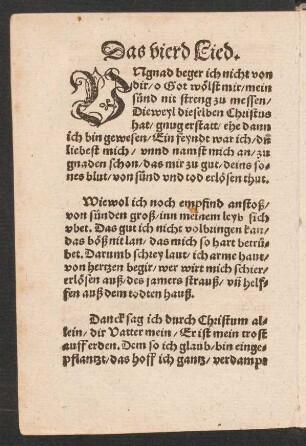 Das vierd Lied.
VNgnad beger ich nicht von
dir/ o Got wölst mir/ mein
sünd nit streng zu messen/
Dieweyl dieselben Christus
hat/ gnug erstatt/ ehe dann
ich bin gewesen/ Ein feyndt war ich/ dñ
liebest mich/ vnnd namst mich an/ zu
gnaden schon/ das mir zu gut/ deins so-
nes blut/ von sünd vnd tod erlösen thut.
Wiewol ich noch empfind anstoß/
von sünden groß/ inn meinem leyb sich
vbet. Das gut ich nicht volbungen kan/
das böß nit lan/ das mich so hart betrü-
bet. Darumb schrey laut/ ich arme haut/
von hertzen begir/ wer wirt mich schier/
erlösen auß/ des jamers strauß/ vñ helf-
fen auß dem todten hauß.
Danck sag ich durch Christum al-
lein/ dir Vatter mein/ Er ist mein trost
auff erden. Dem so ich glaub/ bin einge-
pflantzt/ das hoff ich gantz/ verdampt